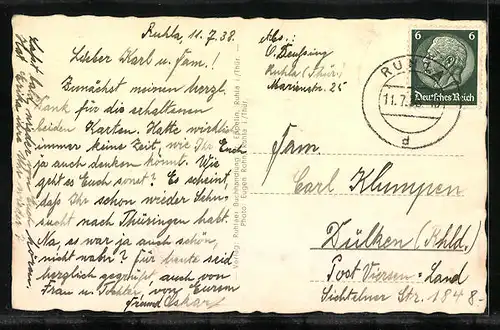 Ruhla, 11.7.38.
Lieber Karl u. Fam.!
Zunächst meinen herzl.
Dank für die erhaltenen
beiden Karten. Hatte wirklich
immer keine Zeit, wie Ihr Euch
ja auch denken könnt. Wie
geht es Euch sonst? Es scheint,
daß Ihr schon wieder Sehn-
sucht nach Thüringen habt.
Na, es war ja auch schön,
nicht wahr? Für heute seid
herzlich gegrüßt auch von
Frau u. Tochter, von Eurem
Freund Oskar
Verlag: Ruhlaer Buchhandlung Ruhla i./Thür.
Photo: Eugen Ruhla i./Thür.
Abs:
O. Deussing
Ruhla (Thür.)
Marienstr. 25
6 6
Deutsches Reich
RUHLA
11.7.
d
Fam.
Carl Klumpen
Dülken (Rhld.)
Post Viersen-Land
Süchtelner Str. 184 8-